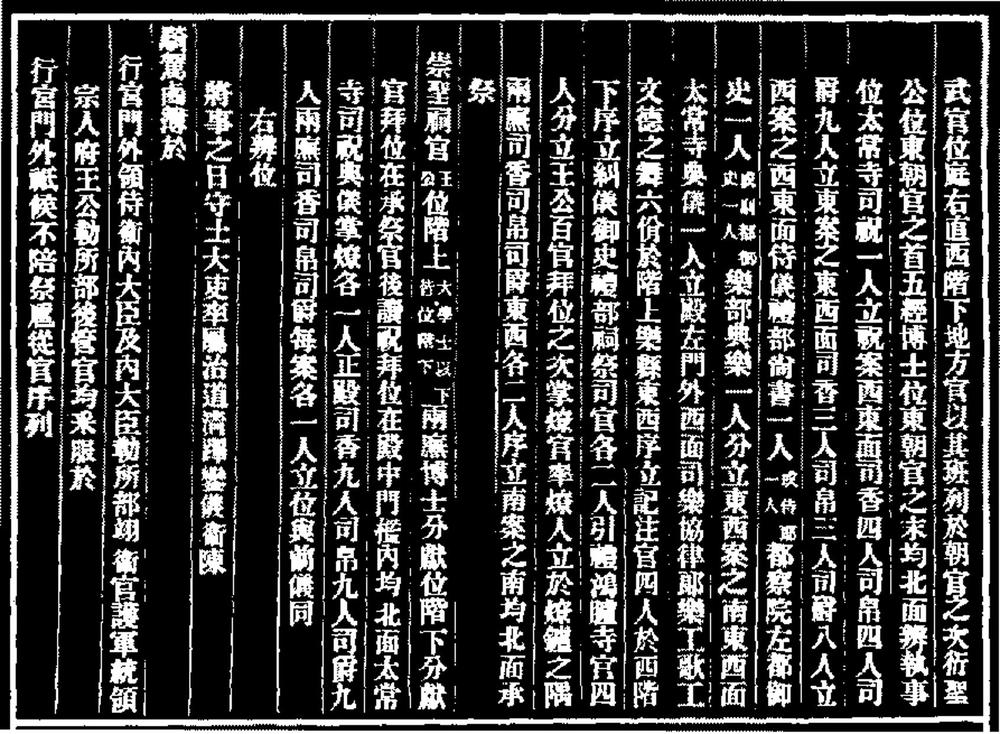 武官位庭右直西階下地方官以其班列於朝官之次衍聖
公位東朝官之首五經博士位東朝官之末均北面辨執事
位太常寺司祝一人立祝案西東面司香四人司帛四人司
爵九人立東案之東西面司香三人司帛三人司爵八人立
西案之西東面侍儀禮部尚書一人或侍郎一人都察院左都御
史一人或副都御史一人樂部典樂一人分立東西案之南東西面
太常寺典儀一人立殿左門外西面司樂協律郎樂工歌工
文德之舞六佾於階上樂縣東西序立記注官四人於西階
下序立糾儀御史禮部祠祭司官各二人引禮鴻臚寺官四
人分立王公百官拜位之次掌燎官率燎人立於燎鑪之隅
兩廡司香司帛司爵東西各二人序立南案之南均北面承
祭
崇聖祠官王公位階上大學士以下皆位階下兩廡博士分獻位階下分獻
官拜位在承祭官後讀祝拜位在殿中門檻內均北面太常
寺司祝典儀掌燎各一人正殿司香九人司帛九人司爵九
人兩廡司香司帛司爵每案各一人立位與前儀同
右辨位
將事之日守土大吏率屬治道清蹕鑾儀衛陳
騎駕鹵簿於
行宮門外領侍衛內大臣及內大臣勒所部翊衛官護軍統領
宗人府王公勒所部後管官均采服於
行宮門外祗候不陪祭扈從官序列